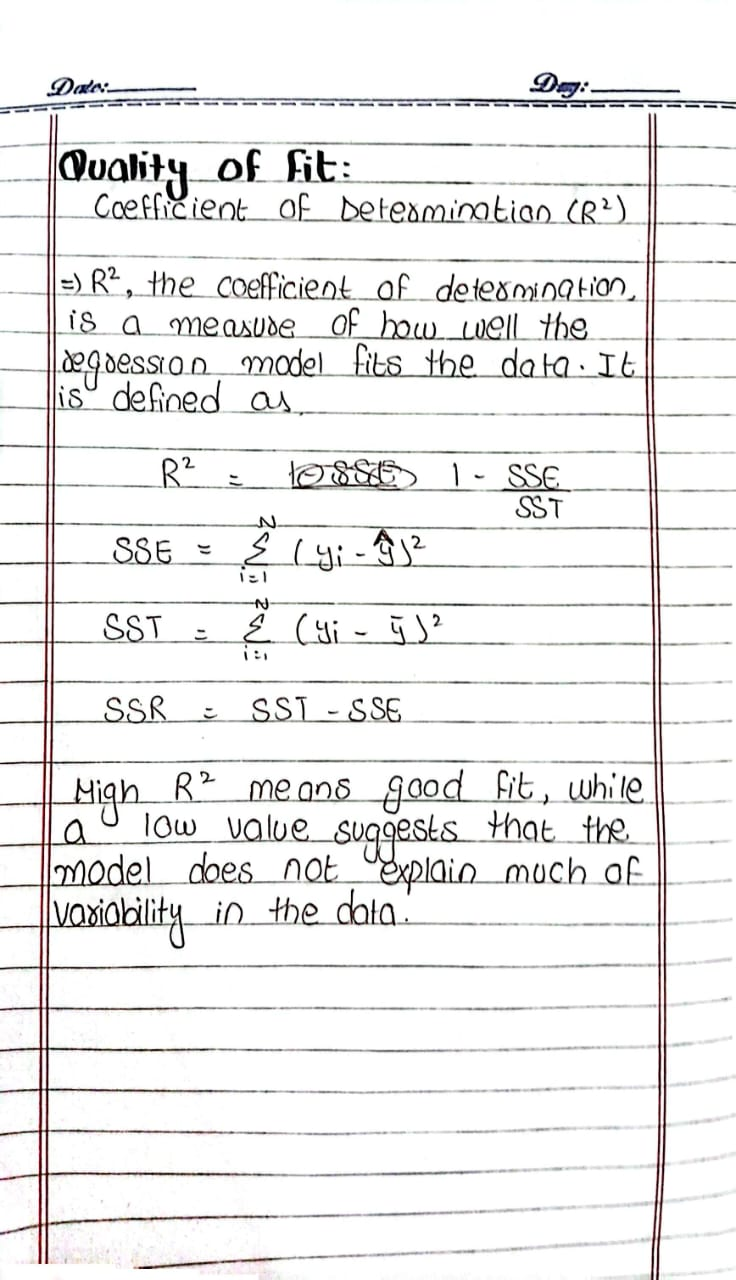 Date:
Day:
Quality of Fit:
Coefficient of Determination (R²)
=) R², the coefficient of determination,
is a measure of how well the
regression model fits the data. It
is defined as,
R² = 1 - SSE/SST
SSE = N Σ i=1 (yi - ŷ)²
SST = N Σ i=1 (yi - ȳ)²
SSR = SST - SSE
High R² means good fit, while
a low value suggests that the
model does not explain much of
variability in the data.